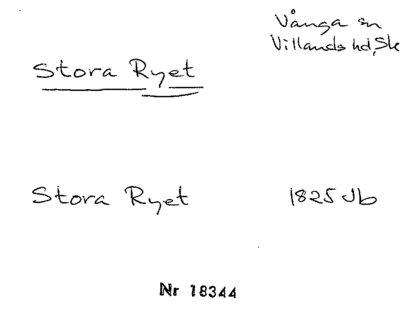 Vånga sn
Villands hd, Sk
Stora Ryet
Stora Ryet 1825 Jb
Nr 18344